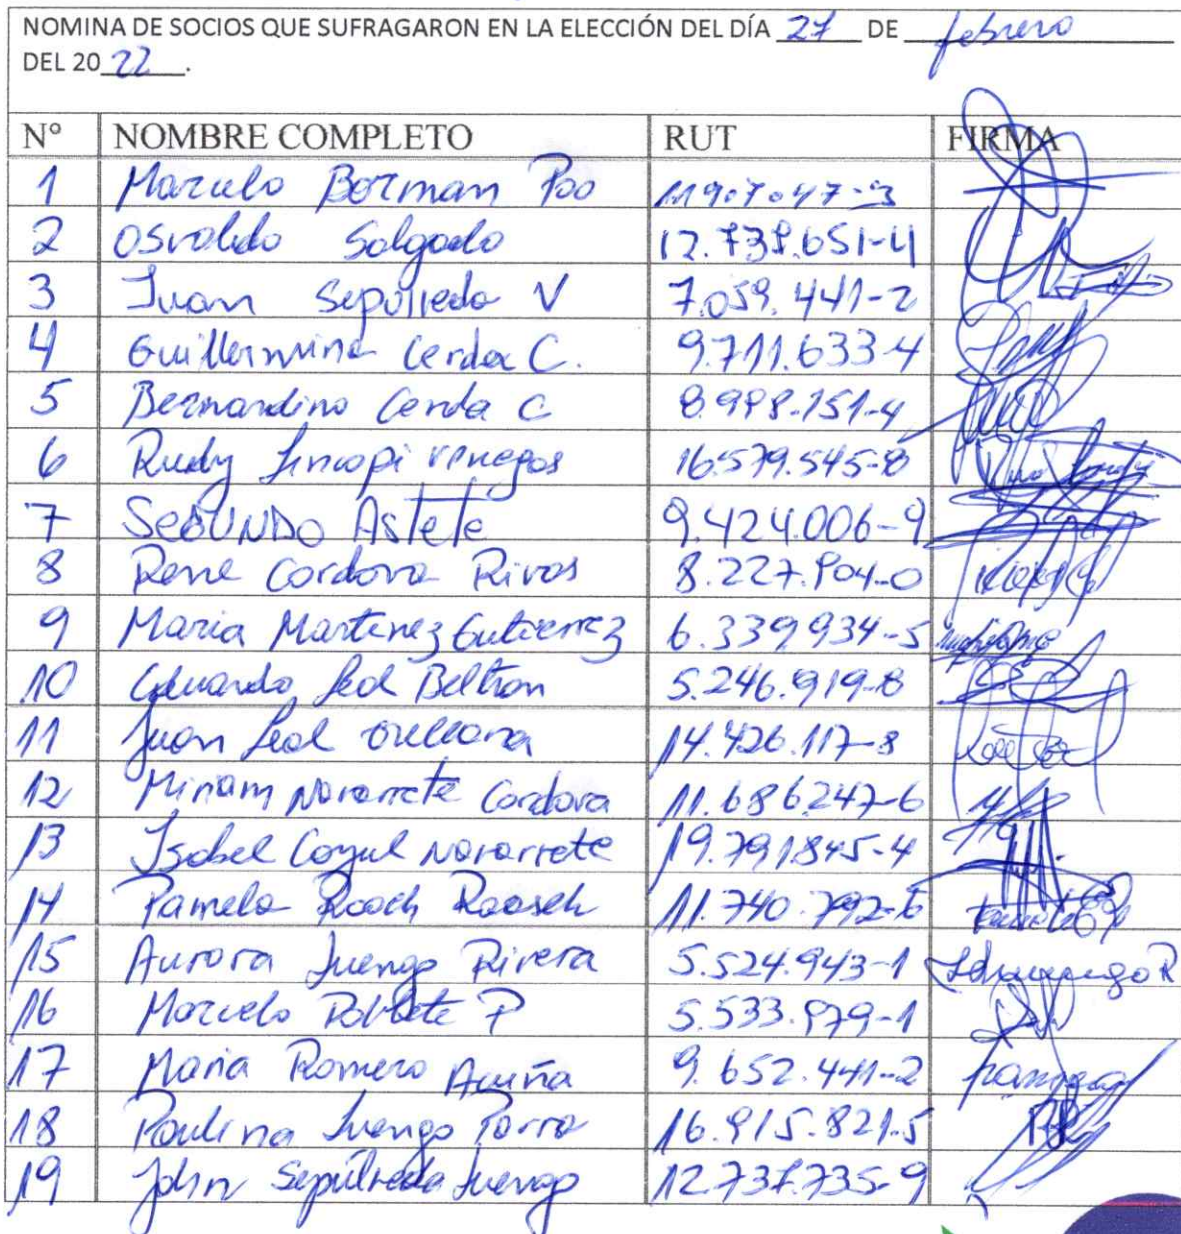 NOMINA DE SOCIOS QUE SUFRAGARON EN LA ELECCIÓN DEL DÍA 27 DE febrero
DEL 20 22.
N° NOMBRE COMPLETO RUT FIRMA
1 Marcelo Borman Poo
2 Osvaldo Salgado 12.738.651-4
3 Juan Sepúlveda V 7.059.441-2
4 Guillermina Cerda C. 9.711.633-4
5 Bernardino Cerda C 8.998.151-4
6 Rudy Lincopi venegas 16.579.545-8
7 SEGUNDO Astete 9.424.006-9
8 Rene Cordova Rivas 8.227.904-0
9 Maria Martinez Gutierrez 6.339.934-5
10 Eduardo Leal Beltran 5.246.919-8
11 Juan Leal Orellana 14.426.117-8
12 Miriam Navarrete Cordova 11.686.247-6
13 Isabel Navarrete 19.791.845-4
14 Pamela 11.740.792-
15 Aurora Luengo Rivera 5.524.943-1
16 Marcelo Poblete P 5.533.979-1
17 Maria Romero Acuña 9.652.441-2
18 Paulina Luengo Parra 16.915.821-5
19 John Sepúlveda Luengo 12.737.735-9